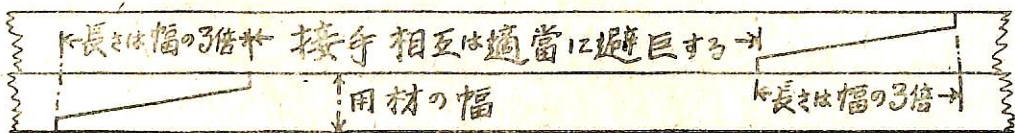 長さは幅の3倍 接手相互は適當に避巨する
用材の幅 長さは幅の3倍